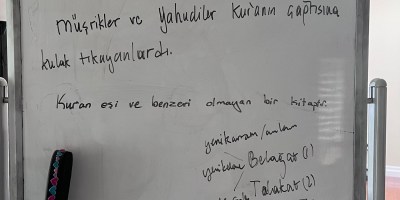 Müşrikler ve Yahudiler Kur'anın çağrısına
kulak tıkayanlardı.
Kuran eşi ve benzeri olmayan bir kitaptır.
Belagat (1)
Talakat (2)